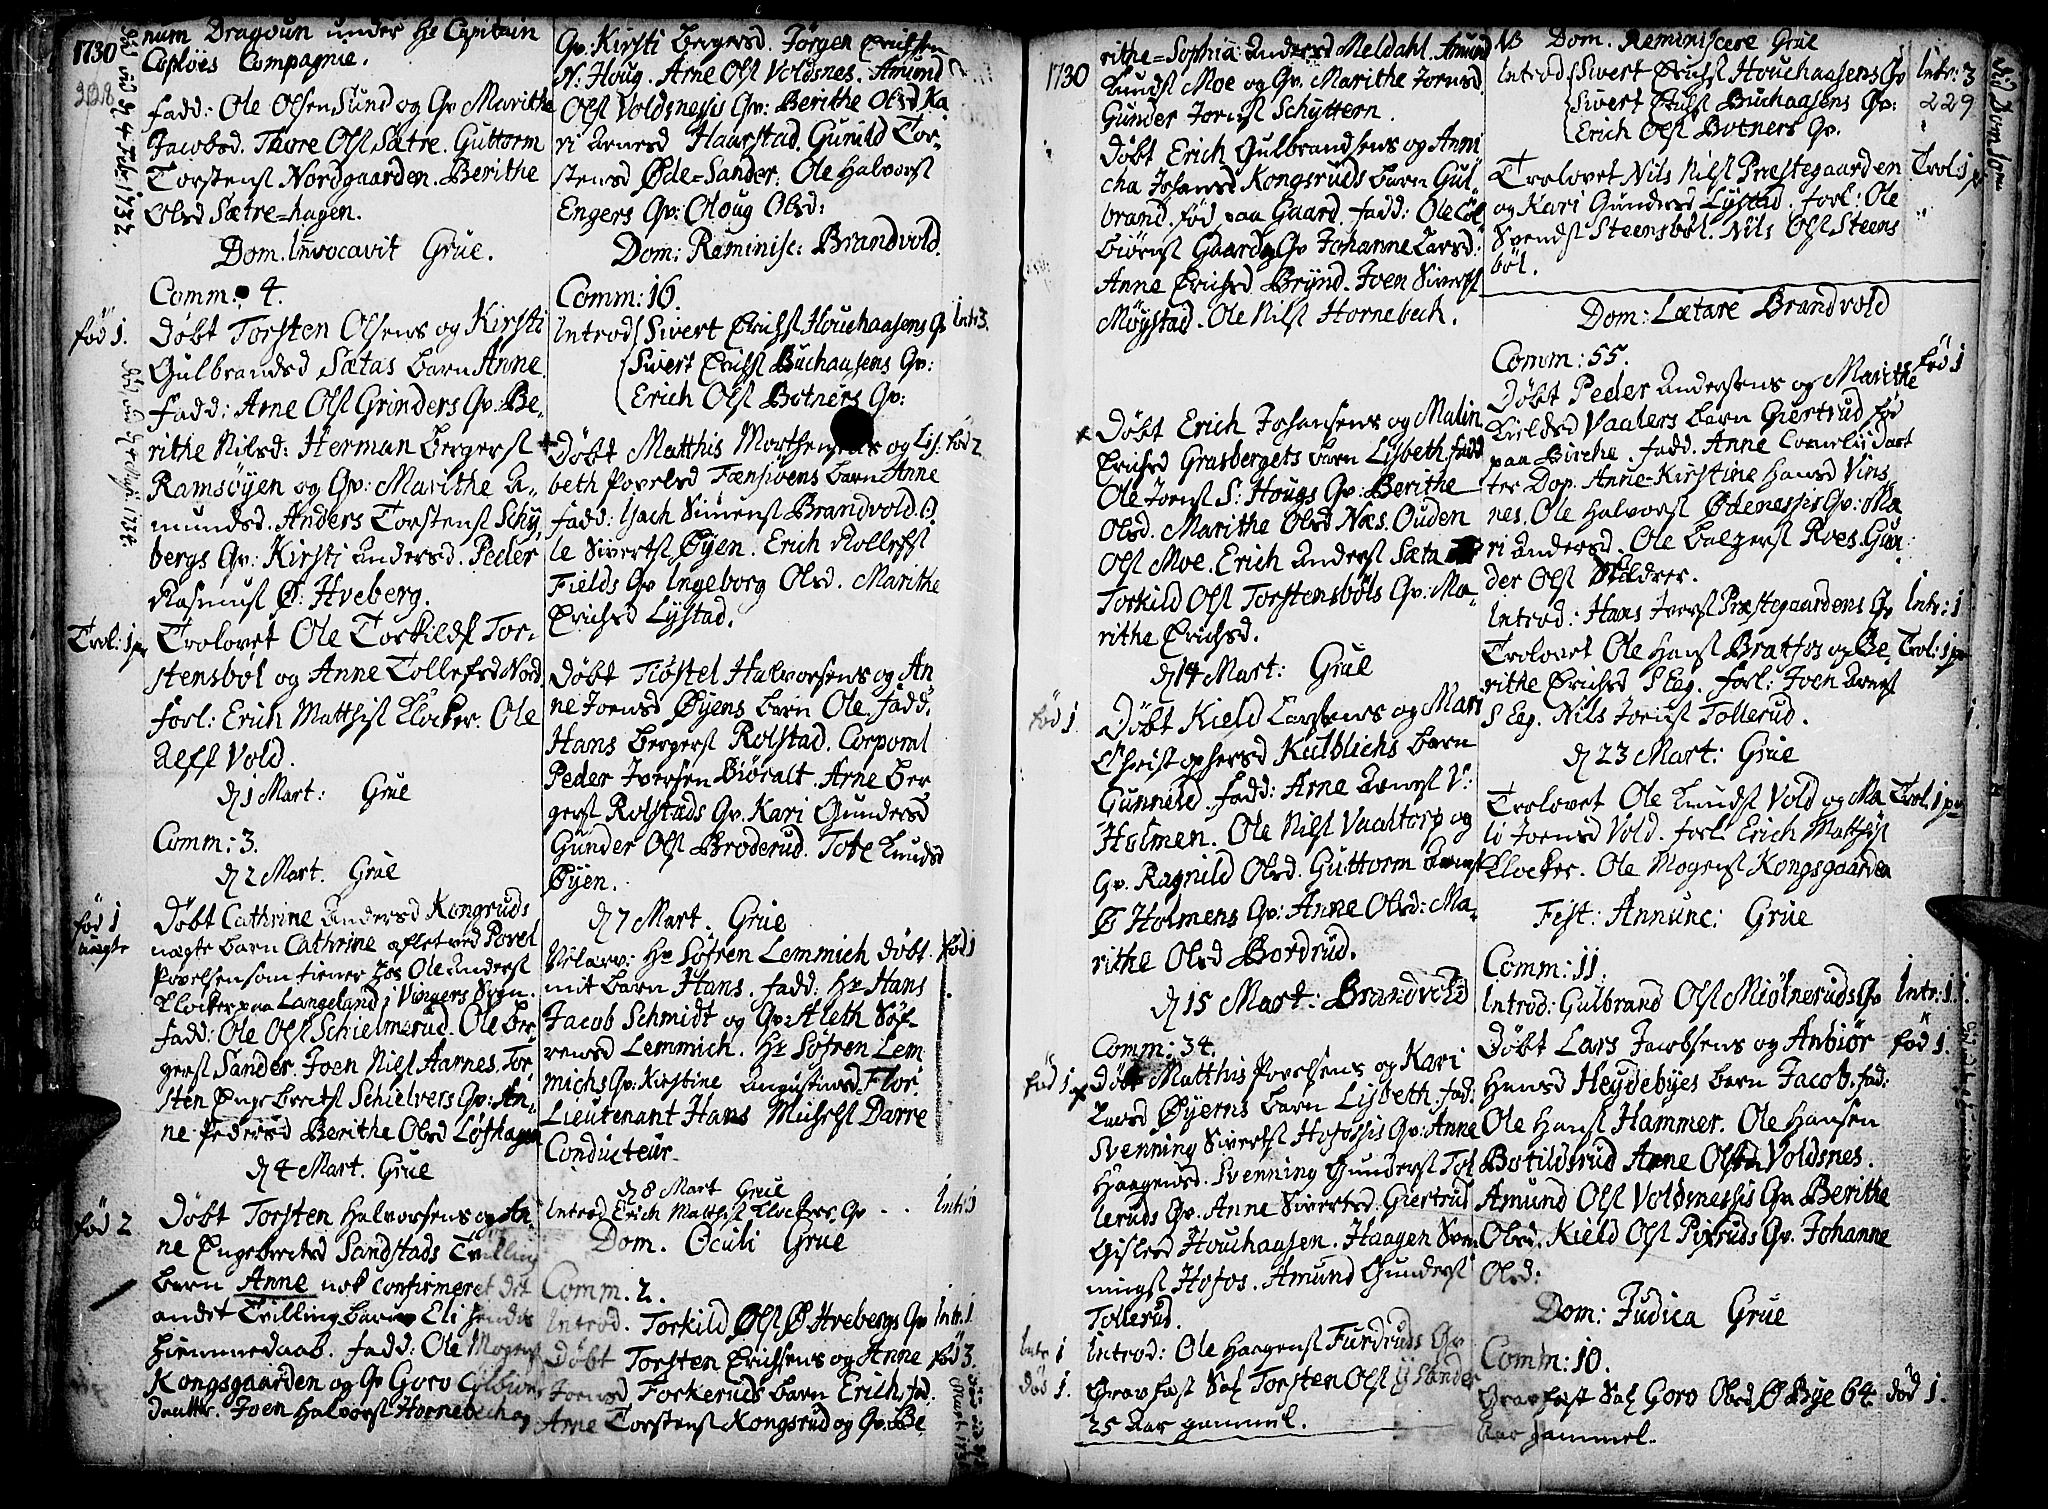 1730
228
num Dragoun under Hr Capitain
Coploies Compagnie.
fadd: Ole Olsen Sund og Qv Marithe
Jacobsd. Thore Olsf Sætre. Guttorm
Torstensf Nordgaarden. Berithe
Olsd Sætre=hagen.
Dom. Invocavit Grue.
Comm. 4.
fød 1.
Døbt Torsten Olsens og Kirsti
Gulbrandsd Sætas barn Anne.
fadd: Arne Olsf Grinders Qv: Be-
rithe Nilsd: Herman Bergersf
Ramsøyen og Qv: Marithe A-
mundsd. Anders Torstensf Schy-
bergs Qv: Kirsti Andersd. Peder
Rasmusf Ø: Hveberg.
Trol: 1 pr
Trolovet Ole Torkildsf Tor-
stensbøl og Anne Tollefsd Nord
forl: Erich Matthisf Klocker. Ole
Alfsf Vold.
d 1 Mart: Grue
Comm: 3.
d 2 Mart. Grue
fød 1
uægte
Døbt Cathrine Andersd Kongruds
uægte barn Cathrine aflet ved Povel
Povelsen som tiener hos Ole Andersf
Klocker paa Langeland i Vingers Sogn.
fadd: Ole Olsf Schielmerud. Ole Ber-
gersf Sander. Joen Nilsf Aarnes. Tor-
sten Engebretsf Schielvers Qv: An-
ne Pedersd Berithe Olsd Løfhagen
d 4 Mart. Grue
fød 2
Døbt Torsten Halvorsens og An-
ne Engebretsd Sandstads Tvilling
barn Anne nok confirmeret det
andet Tvilling barn Eli hendes
hiemmedaab. fadd: Ole Mogensf
Kongsgaarden og Qv Goro
daatter. Joen Halvorsf Hornebech og
Qv. Kirsti Bergersd. Jørgen Erichsen
N. Houg. Arne Olsf Voldsnes. Amund
Olsf Voldsnessis Qv: Berithe Olsd. Ka
ri Arnesd Haarstad. Gunild Tor-
stensd Øde=Sander. Ole Halvorsf
Engers Qv: Oloug Olsd:
Dom: Reminisc: Brandvold.
Comm: 16.
Introd Sivert Erichsf Houchaasens Qv
Intr 3.
Sivert Erichsf Buchaasens Qv:
Erich Olsf Botners Qv:
Døbt Matthis Morthensens og Lis-
fød 2
beth Povelsd Tænsiøens barn Anne
fadd: Isach Simensf Brandvold. O-
le Sivertsf Øyen. Erich Rollefsf
Fields Qv Ingeborg Olsd. Marithe
Erichsd Lystad.
Døbt Tiøstel Halvorsens og An
ne Joensd Øyens barn Ole. fadd:
Hans Bergersf Rolstad. Corporal
Peder Iversen Biøralt. Arne Ber
gersf Rolstads Qv. Kari Gundersd
Gunder Olsf Broderud. Tore Knudsd
Øyen.
d 7 Mart. Grue
Hr Søfren Lemmich døbt.
fød 1
mit barn Hans. fadd: Hr Hans
Jacob Schmidt og Qv: Aleth Søf-
rensd Lemmich. Hr Søfren Lem
michs Qv: Kirstine Augustinsd. Flor:
Lieutenant Hans Michelsf Darre
Conducteur.
d 8 Mart Grue
Introd Erich Matthisf Klockers Qv
Intr: 1
Dom. Oculi Grue
Comm. 2.
Introd. Torkild Olsf Ø Hvebergs Qv
Intr: 1
Døbt Torsten Erichsens og Anne
fød 3.
Joensd Forkeruds barn Erich. fad.
Arne Torstensf Kongsrud og Qv: Be
1730
rithe=Sophia: Andersd Meldahl. Amund
Knudsf Moe og Qv. Marithe Joensd.
Gunder Joensf Schyttern.
Døbt Erich Gulbrandsens og Anni
cha Johansd Kongsruds barn Gul-
brand. fød paa Gaard. fadd: Ole Col
biørnsf Gaard og Qv Johanne Larsd:
Anne Erichsd Brynd. Joen Sivertsf
Møystad. Ole Nilsf Hornebech.
Døbt Erich Johansens og Malin
Erichsd Grasbergets barn Lisbeth. fadd
Ole Joensf S: Hougs Qv: Berithe
Olsd. Marithe Olsd Næs. Ouden
Olsf Moe. Erich Andersf Sæta
Torkild Olsf Torstensbøls Qv: Ma-
rithe Erichsd.
d 14 Mart: Grue
fød 1
Døbt Kield Larsens og Mari
Christophersd Kulblichs barn
Gunnild. fadd: Arne Arnesf V:
Holmen. Ole Nilsf Vaaltorp og
Qv. Ragnild Olsd. Guttorm Arnesf
Ø Holmens Qv: Anne Olsd: Ma-
rithe Olsd Bordrud.
d 15 Mart: Brandvold
Comm: 34.
fød 1
Døbt Matthis Povelsens og Kari
Larsd Øyerns barn Lisbeth. fad:
Svenning Sivertsf Hofossis Qv: Anne
Haagensd. Svenning Gundersf Tol
leruds Qv. Anne Sivertsd. Giertrud
Gislesd Houchaasen. Haagen Sven
ningsf Hofos. Amund Gundersf
Tollerud.
Intr 1
Introd: Ole Haagensf Fururuds Qv
død 1.
Gravfæst Sal Torsten Olsf Sander
25 Aar gammel.
NB Dom. Reminiscere Grue
Introd Sivert Erichsf Houchaasens Qv
Intr: 3
Sivert Erichsf Buchaasens Qv:
229
Erich Olsf Botners Qv.
Trolovet Nils Nilsf Præstegaarden
Trol: 1 p
og Kari Gundersd Lystad. forl: Ole
Svendsf Steensbøl. Nils Olsf Steens
bøl.
Dom: Lætare Brandvold
Comm: 55.
fød 1
Døbt Peder Andersens og Marithe
Kieldsd Vaalers barn Giertrud fød
paa Kirche. fadd. Anne Cornelii daat
ter Dop. Anne-Kirstine Hansd Vins
nes. Ole Halvorsf Ødenessis Qv: Ma
ri Andersd. Ole Balzersf Roes. Gun
der Olsf Møldrer.
Introd: Hans Iversf Præstegaardens Qv
Intr: 1
Trolovet Ole Hansf Bratfos og Be
Trol: 1 pr
rithe Erichsd S Eeg. forl: Joen Arnesf
S Eeg. Nils Joensf Tollerud.
d 23 Mart: Grue
Trolovet Ole Knudsf Vold og Ma
Trol: 1 pr
li Joensd Vold. forl: Erich Matthisf
Klocker. Ole Mogensf Kongsgaarden
Fest: Annunc: Grue
Comm: 11.
Introd: Gulbrand Olsf Miølneruds Qv
Intr: 1
Døbt Lars Jacobsens og Anbiør
fød 1.
Hansd Heydebyes barn Jacob. fad:
Ole Hansf Hammer. Ole Hansen
Botildsrud Arne Olsen Voldsnes.
Amund Olsf Voldsnessis Qv Berithe
Olsd. Kield Olsf Pixruds Qv. Johanne
Olsd:
Dom: Judica Grue
Comm: 10.
Gravfæst Sal Goro Olsd Ø Bye 64
død 1.
Aar gammel.